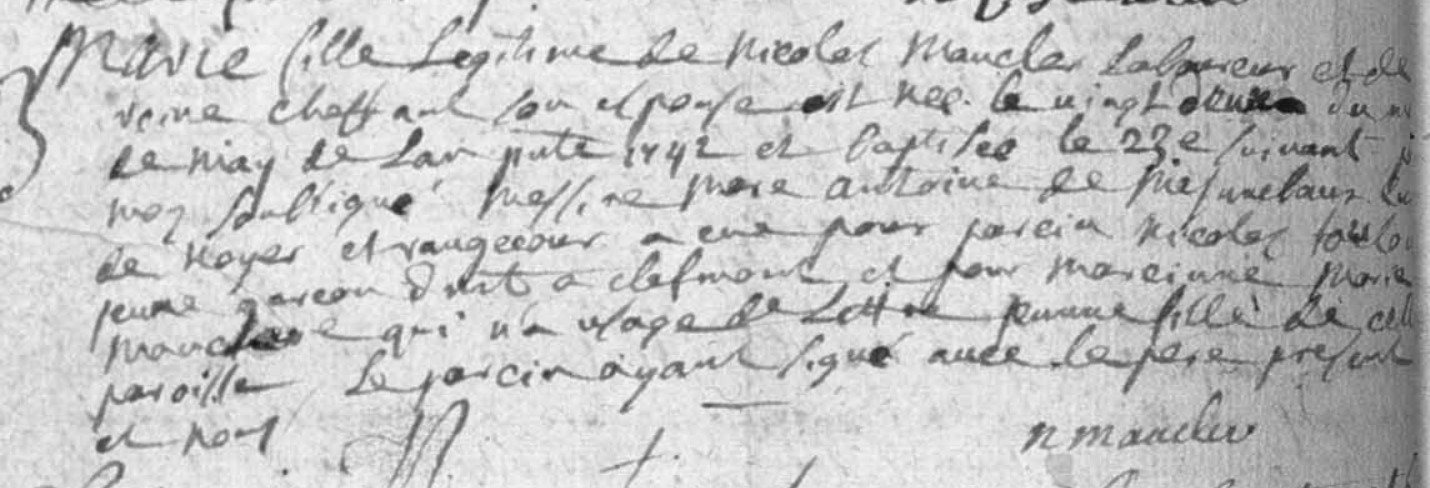 Marie fille Legitime de Nicolas Maucler Laboureur et de
reine cheffaut son espouse est nee le vingt deuxe du
de may de Lan pnte 1742 et baptisee le 23e suivant
moy soussigné Messire Marc antoine de
de Noyer et rangecour a eue pour parein Nicolas
jeune garcon dmt a clefmont et pour mareinne Marie
mauclere qui n'a usage de Lettre jeunne fille de
paroisse Le parein ayant signé avec le pere present
et nous
n maucler